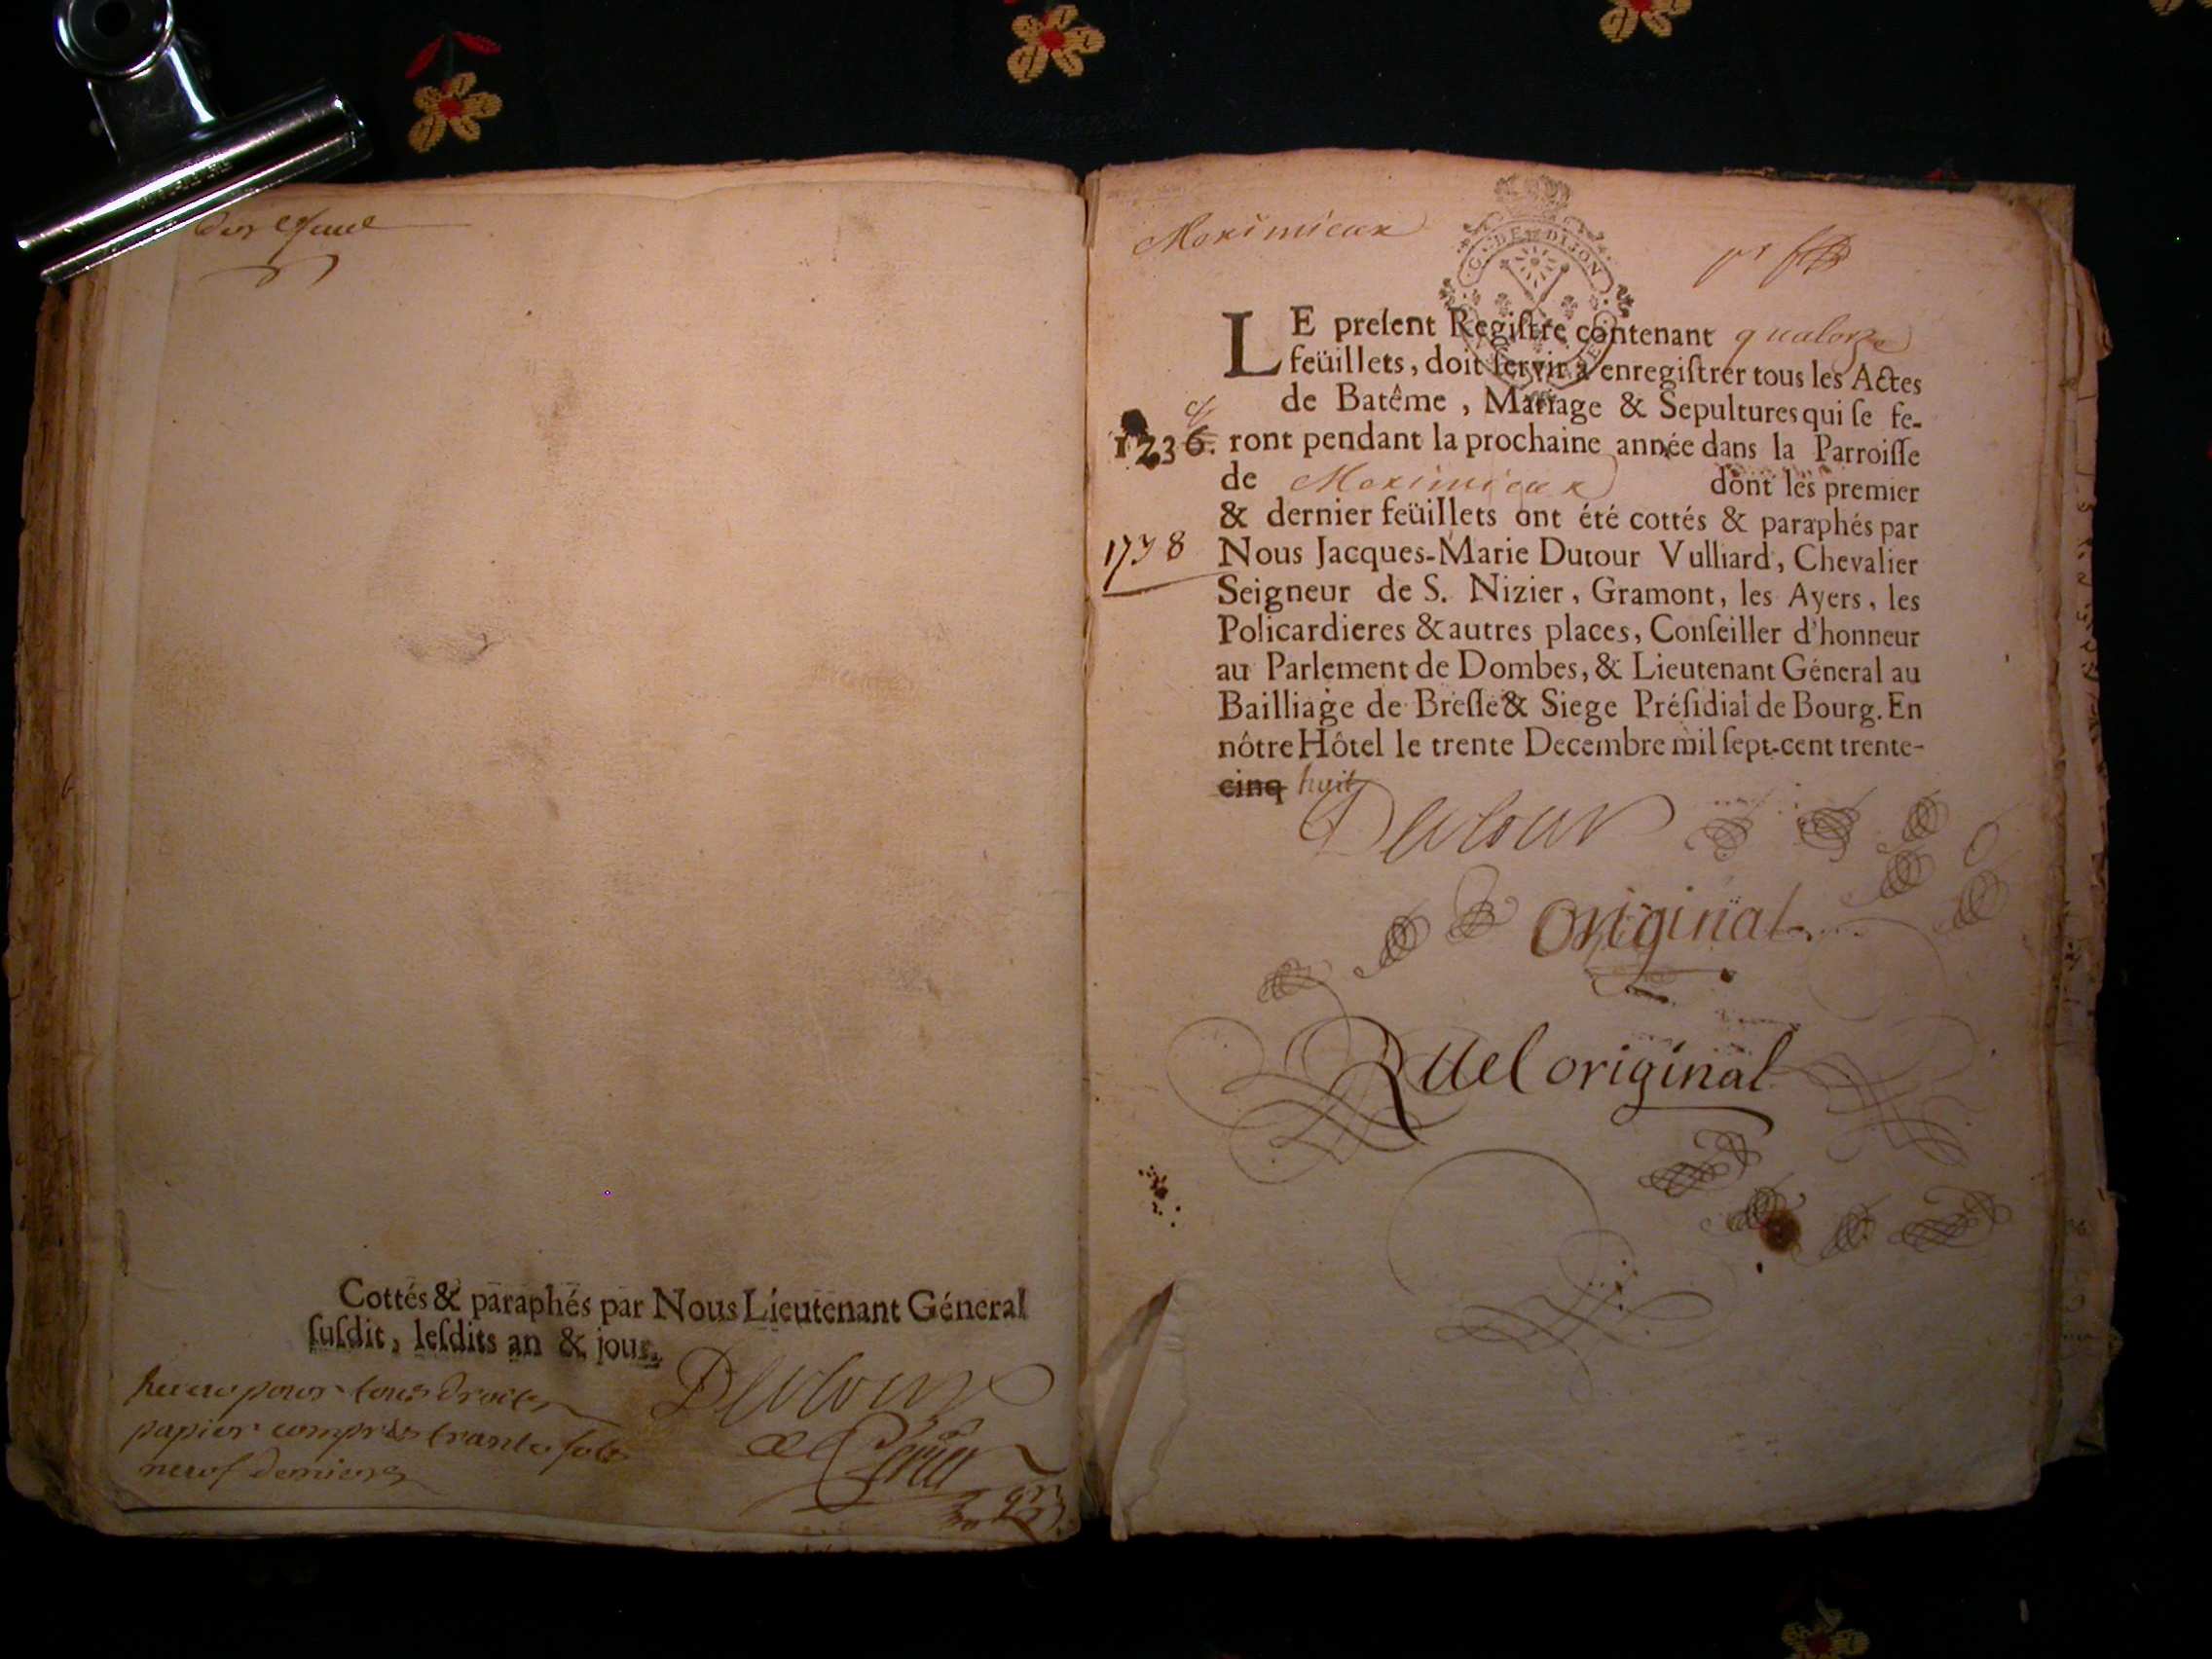 Cottés & paraphés par Nous Lieutenant Géneral
ſuſdit, leſdits an & jour.
Dutour
papier compris trante sols
neuf deniers
Moximieux
G. DE DIJON
LE preſent Regiſtre contenant quatorze
feüillets, doit ſervir à enregiſtrer tous les Actes
de Batême, Mariage & Sepultures qui ſe fe-
1736. ront pendant la prochaine année dans la Parroiſſe
de Moximieux dont les premier
& dernier feüillets ont été cottés & paraphés par
1738 Nous Jacques-Marie Dutour Vulliard, Chevalier
Seigneur de S. Nizier, Gramont, les Ayers, les
Policardieres & autres places, Conſeiller d'honneur
au Parlement de Dombes, & Lieutenant Géneral au
Bailliage de Breſſe & Siege Préſidial de Bourg. En
nôtre Hôtel le trente Decembre mil ſept-cent trente-
cinq huit
Dutour
Original
Quel original